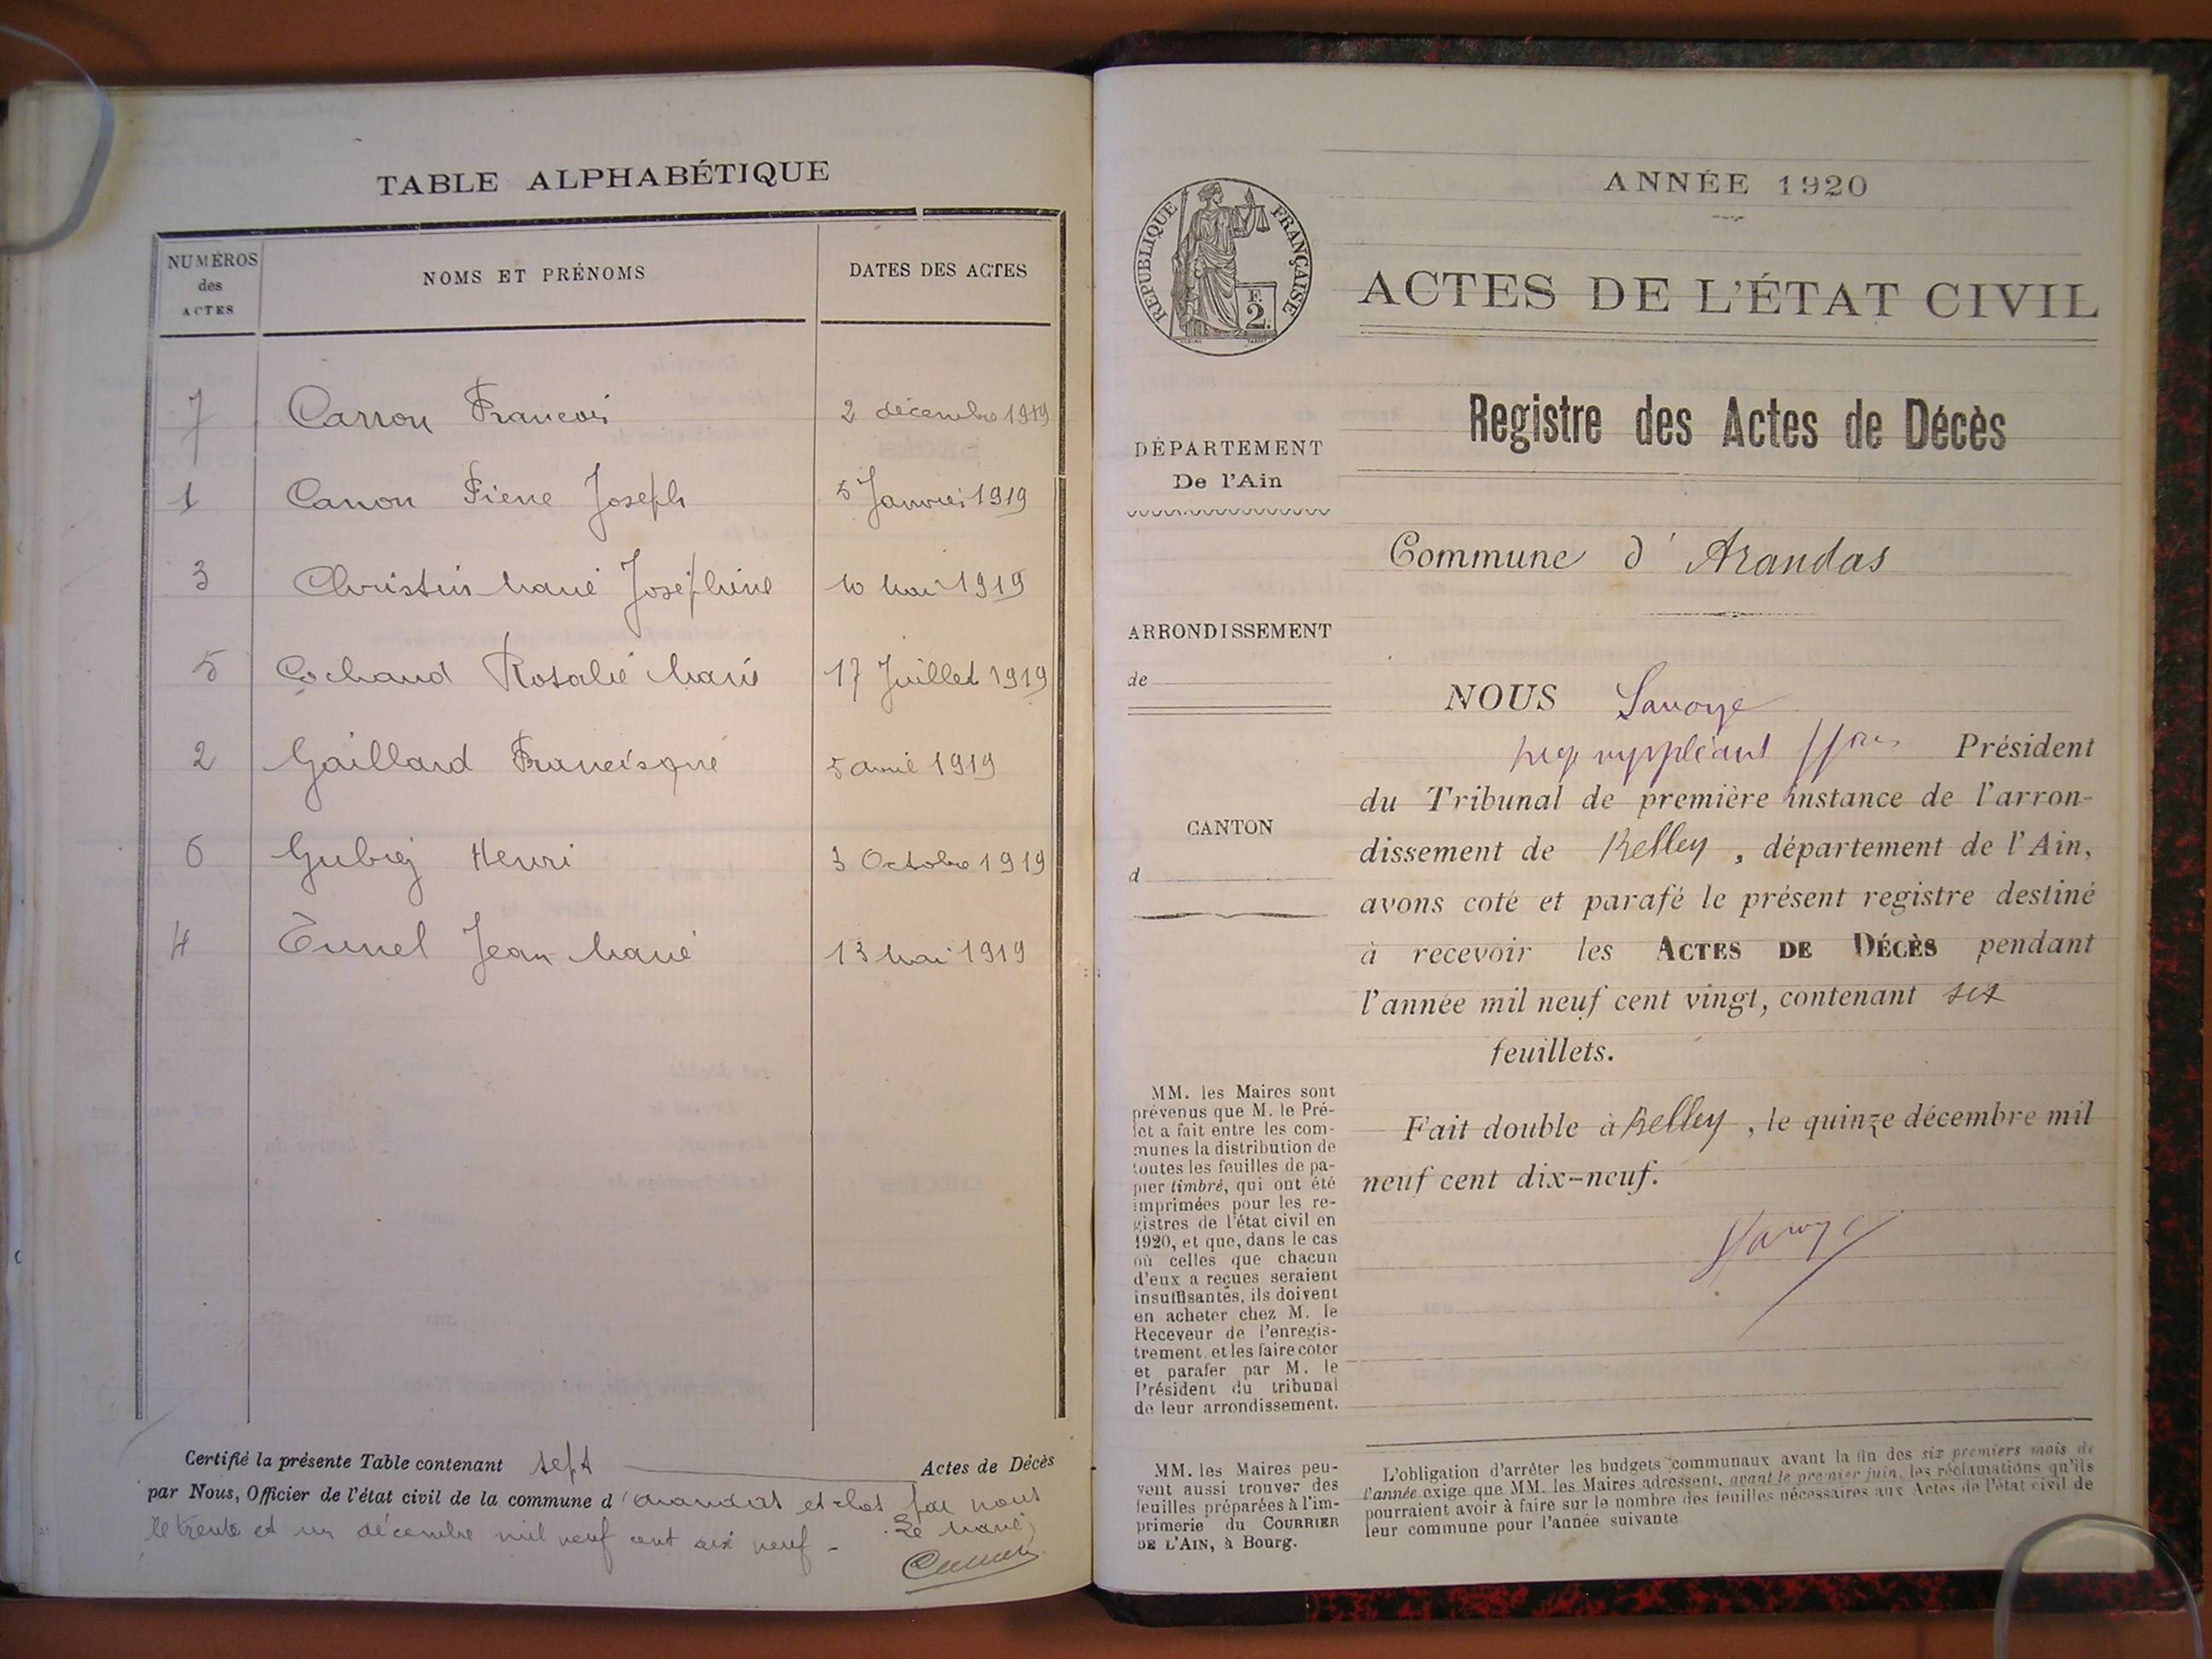 TABLE ALPHABÉTIQUE
NUMÉROS
des
ACTES
NOMS ET PRÉNOMS
DATES DES ACTES
7 Carron Francois 2 décembre 1919
1 Carron Pierre Joseph 5 Janvier 1919
3 Christin Marie Joséphine 10 Mai 1919
5 Cochaud Rosalie Marie 17 Juillet 1919
2 Gaillard Francisque 5 avril 1919
6 Gubiez Henri 3 Octobre 1919
4 Tunel Jean Marie 13 Mai 1919
Certifié la présente Table contenant sept Actes de Décès
par Nous, Officier de l'état civil de la commune d'Arandas et clos par nous
le trente et un décembre mil neuf cent dix neuf -
Le Maire,
ANNÉE 1920
RÉPUBLIQUE FRANÇAISE
E.
2.
ACTES DE L'ÉTAT CIVIL
Registre des Actes de Décès
DÉPARTEMENT
De l'Ain
Commune d'Arandas
ARRONDISSEMENT
de
CANTON
d
NOUS Savoye
juge suppléant ffons Président
du Tribunal de première instance de l'arron-
dissement de Belley, département de l'Ain,
avons coté et parafé le présent registre destiné
à recevoir les ACTES DE DÉCÈS pendant
l'année mil neuf cent vingt, contenant six
feuillets.
Fait double à Belley, le quinze décembre mil
neuf cent dix-neuf.
Savoye
MM. les Maires sont
prévenus que M. le Pré-
fet a fait entre les com-
munes la distribution de
toutes les feuilles de pa-
pier timbré, qui ont été
imprimées pour les re-
gistres de l'état civil en
1920, et que, dans le cas
où celles que chacun
d'eux a reçues seraient
insuffisantes, ils doivent
en acheter chez M. le
Receveur de l'enregis-
trement et les faire coter
et parafer par M. le
Président du tribunal
de leur arrondissement.
MM. les Maires peu-
vent aussi trouver des
feuilles préparées à l'im-
primerie du COURRIER
DE L'AIN, à Bourg.
L'obligation d'arrêter les budgets communaux avant la fin des six premiers mois de
l'année exige que MM. les Maires adressent, avant le premier juin, les réclamations qu'ils
pourraient avoir à faire sur le nombre des feuilles nécessaires aux Actes de l'état civil de
leur commune pour l'année suivante